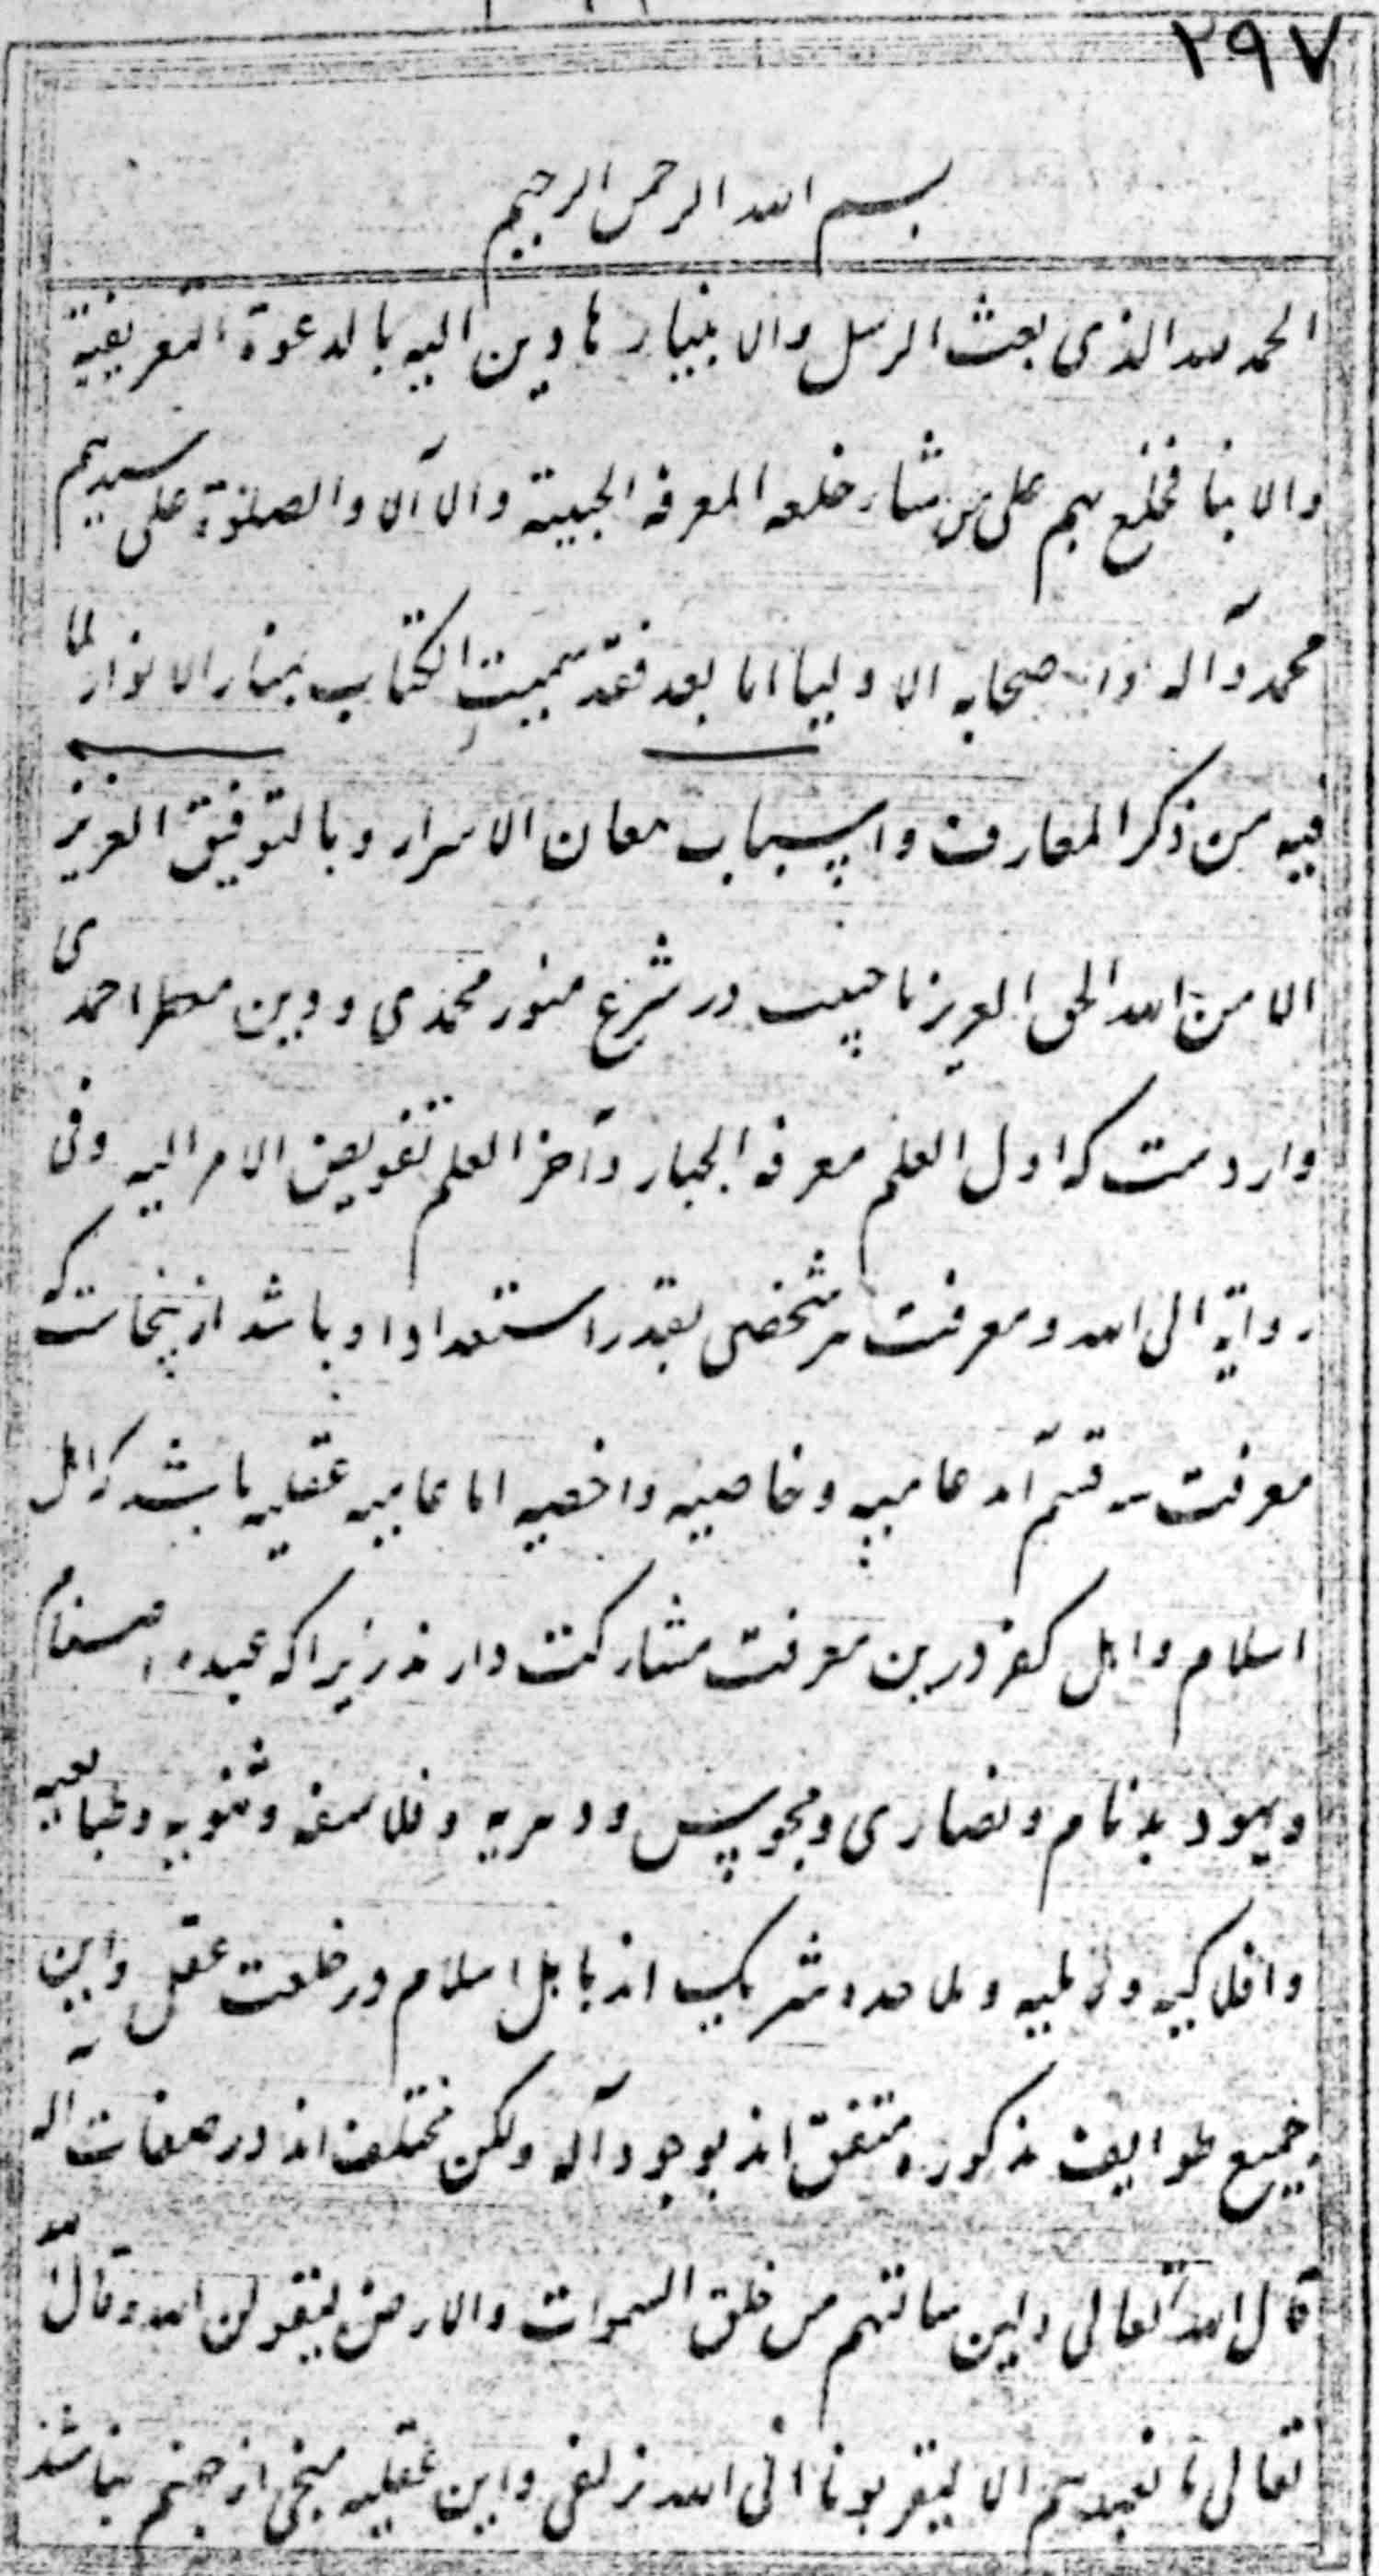 ۲۹۷
بسم الله الرحمن الرحیم
الحمد لله الذی بعث الرسل والانبیاء هادین الیه بالدعوة التعریفیة
والانبا فخلع بهم علی من شاء خلعه المعرفه الجبیة والا آلا والصلوة علی سیدهم
محمد وآله واصحابه الاولیا اما بعد فقد سمیت الکتاب بمنار الانوار لما
فیه من ذکر المعارف واسباب معان الاسرار وبالتوفیق العزیز
الا من الله الحی العزیز در شرع منور محمدی ودین مطهر احمدی
واردست که اول العلم معرفه الجبار وآخر العلم تفویض الامر الیه وفی
روایة الی الله ومعرفت هر شخصی بقدر استعداد او باشد ازینجاست که
معرفت سه قسم آمد عامیه وخاصیه واخصیه اما عامیه عقلیه باشد که اهل
اسلام واهل کفر درین معرفت مشارکت دارند زیرا که عبده اصنام
ویهود بدنام ونصاری ومجوس ودهریه وفلاسفه وثنویه وطبایعیه
وافلاکیه و وملاحده شریک اند باهل اسلام در خلعت عقل واین
جمیع طوایف مذکوره متفق اند بوجود آله ولکن مختلف اند در صفات اله
قال الله تعالی ولین سالتهم من خلق السموات والارض لیقولن الله وقال الله
تعالی ما نعبدهم الا لیقربونا الی الله زلفی واین عقلیه منجی از جهنم نباشد